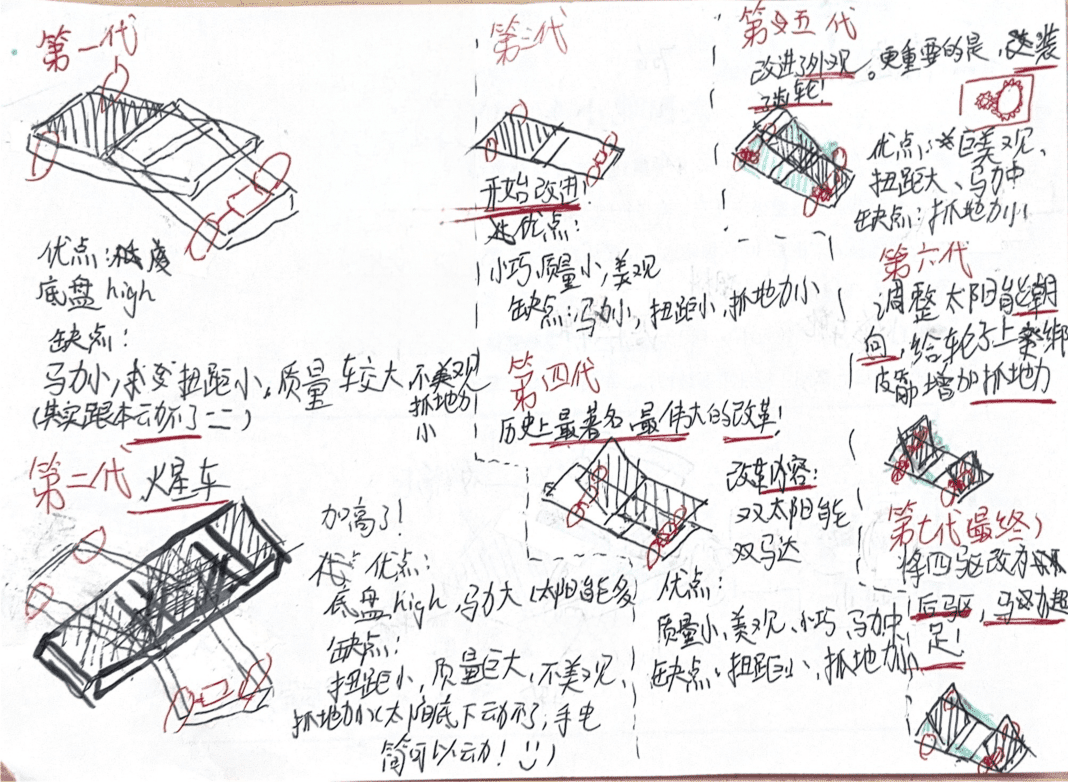 第一代
优点：
底盘high
缺点：
马力小，扭距小，质量较大 不美观
抓地力
小
(其实跟本云动不了二二)
第二代 火星车
加高了！
优点：
底盘high，马力大(太阳能多)
缺点：
扭距小，质量巨大，不美观，
抓地力小(太阳底下动不了，手电
筒可以云力！)
第三代
开始改进！
优点：
小巧，质量小，美观
缺点：马力小，扭距小，抓地力小
第四代
历史上最著名、最伟大的改革！
改革内容：
双太阳能
双马达
优点：
质量小、美观、小巧、马力中
缺点：扭距小、抓地力小
第五代
改进外观。更重要的是，改装
齿轮！
优点：巨美观、
扭距大、马力中
缺点：抓地力小
第六代
调整太阳能朝
向，给轮子上绑
皮筋增加抓地力
第七代(最终)
将四驱改为
后驱，马力超
足！